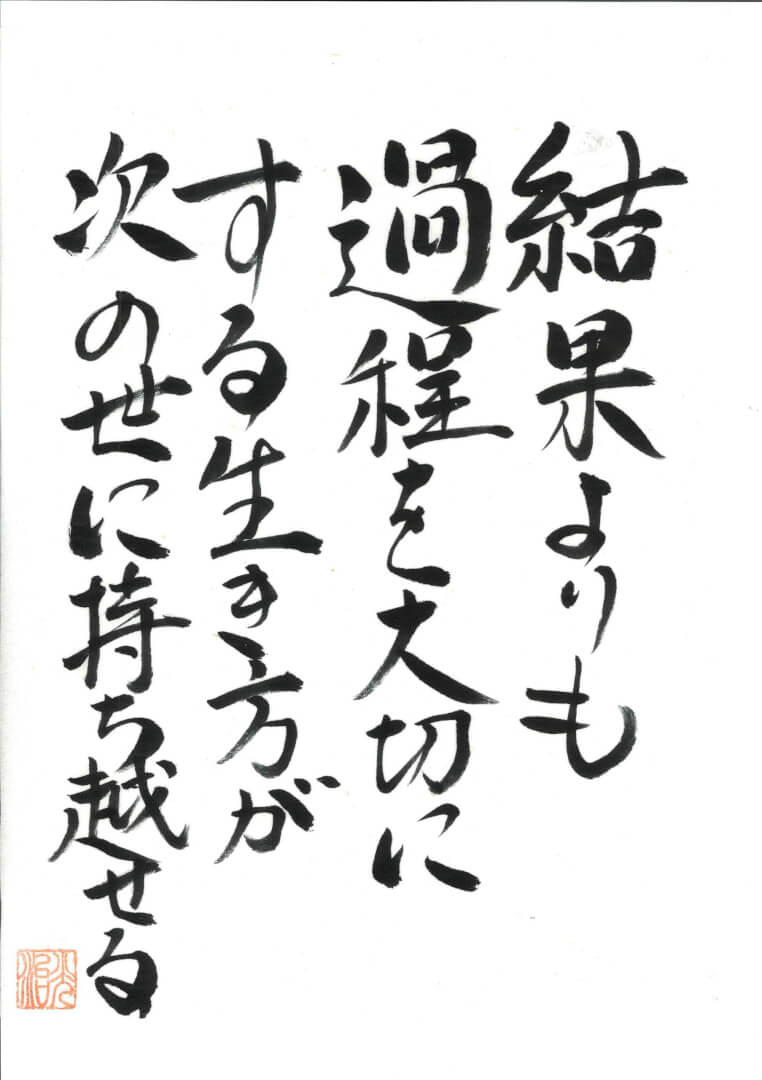 結果よりも
過程を大切に
する生き方が
次の世に持ち越せる